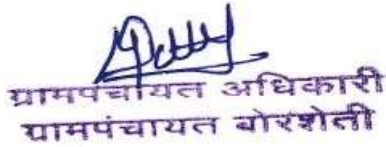 ग्रामपंचायत अधिकारी
ग्रामपंचायत बोरशेती